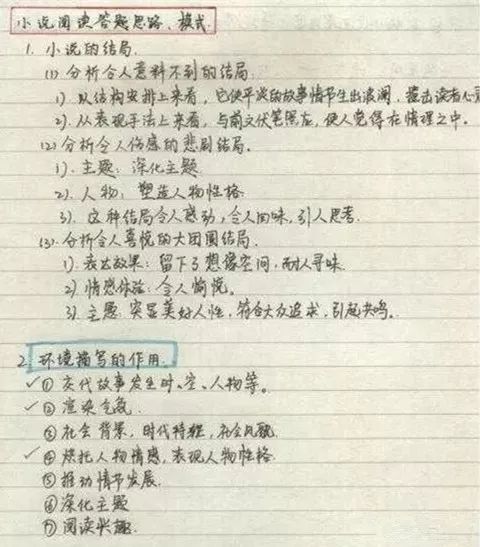 小说阅读答题思路、模式
1. 小说的结局
(1) 分析令人意料不到的结局.
1). 从结构安排上来看，它使平淡的故事情节生出波澜，震击读者心
2). 从表现手法上来看，与前文伏笔照应，使人觉得在情理之中。
(2) 分析令人伤感的悲剧结局。
1). 主题：深化主题
2). 人物：塑造人物性格
3). 这种结局令人感动，令人回味，引人思考.
(3). 分析令人喜悦的大团圆结局.
1). 表达效果：留下了想像空间，耐人寻味.
2) 情感体验：令人愉悦。
3) 主题：突显美好人性，符合大众追求，引起共鸣。
2. 环境描写的作用.
✓① 交代故事发生时、空、人物等。
✓② 渲染气氛.
③ 社会背景，时代特征，社会风貌
✓④ 烘托人物情感，表现人物性格
⑤ 推动情节发展.
⑥ 深化主题
⑦ 阅读兴趣.